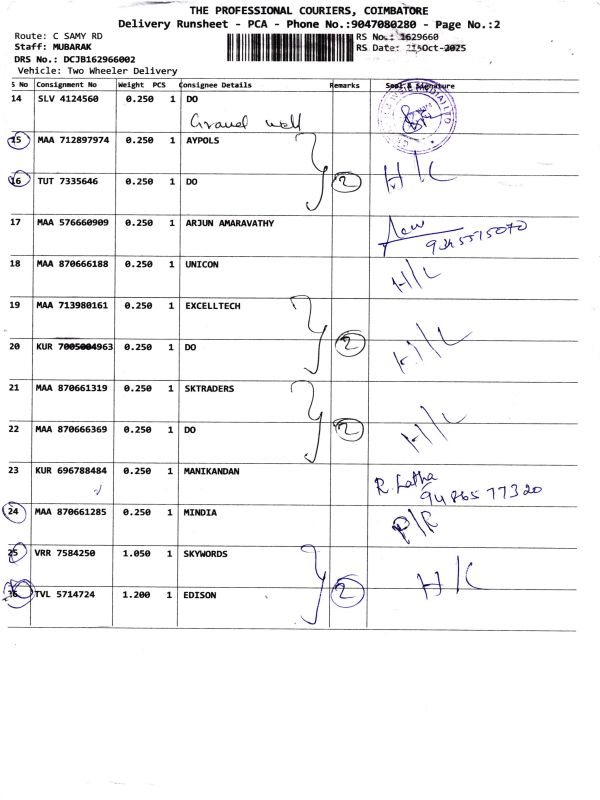 THE PROFESSIONAL COURIERS, COIMBATORE
Delivery Runsheet - PCA - Phone No.:9047080280 - Page No.:2
Route: C SAMY RD
RS No.: 1629660
Staff: MUBARAK
RS Date: Oct-2025
DRS No.: DCJB162966002
Vehicle: Two Wheeler Delivery
S No Consignment No Weight PCS Consignee Details Remarks Seal & Signature
14 SLV 4124560 0.250 1 DO
Grand well
15 MAA 712897974 0.250 1 AYPOLS
H/C
16 TUT 7335646 0.250 1 DO 2
17 MAA 576660909 0.250 1 ARJUN AMARAVATHY
9345575070
18 MAA 870666188 0.250 1 UNICON H/C
19 MAA 713980161 0.250 1 EXCELLTECH
20 KUR 7005004963 0.250 1 DO 2 H/C
21 MAA 870661319 0.250 1 SKTRADERS
22 MAA 870666369 0.250 1 DO 2 H/C
23 KUR 696788484 0.250 1 MANIKANDAN
R. Latha
9486577320
24 MAA 870661285 0.250 1 MINDIA P/R
25 VRR 7584250 1.050 1 SKYWORDS
H/C
26 TVL 5714724 1.200 1 EDISON 2